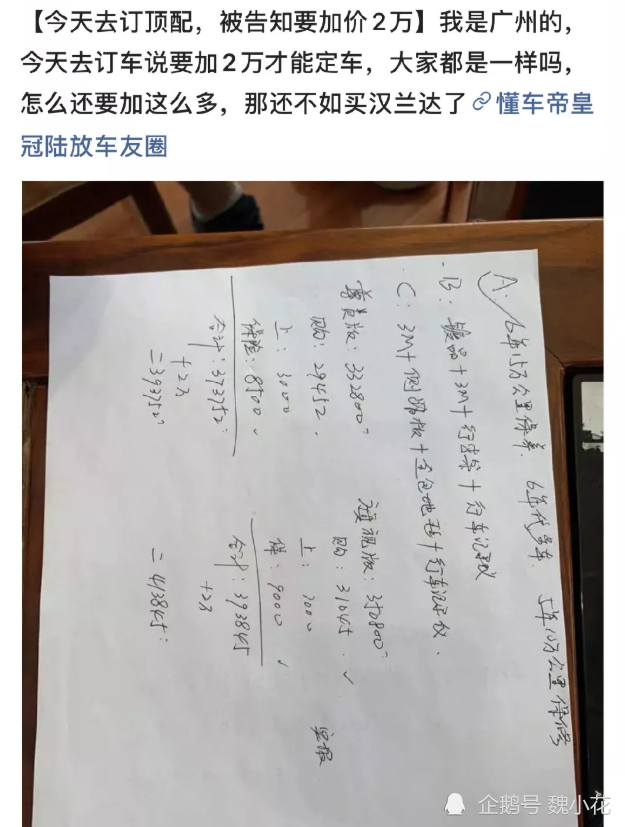 【今天去订顶配，被告知要加价2万】我是广州的，
今天去订车说要加2万才能定车，大家都是一样吗，
怎么还要加这么多，那还不如买汉兰达了 懂车帝皇
冠陆放车友圈
A: 6年15万公里保养. 6年代步车. 5年10万公里保修
B: 镀晶+3M+行李架+行车记录仪
C: 3M+侧踏板+全包地毯+行车记录仪.
尊贵版: 332800
购: 29452.
上: 3000
保险: 8500
合计: 373752
+2万
=393752
旗舰版: 350800
购: 31045
上: 3000
保: 9000
合计: 393845
+2万
=413845
企鹅号 魏小花